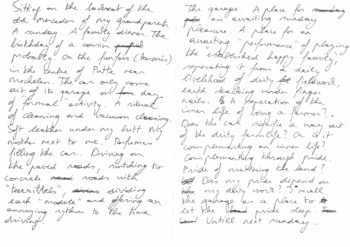 Sitting on the backseat of the
old mercedes of my grandparents
A sunday. A family dinner. The
birthday of a cousin
probably. On the
in the centre of Putte near
mechelen. The car only come
out of its garage on days
of formal activity. A ritual
of cleaning and vacuum cleaning.
Soft leather under my butt. My
mother next to me. Perfume
filling the car. Driving on
the paved roads moulding to
concrete roads with
dividing
each "module" and offering an
annoying rythm to the hour
driving
The garage. A place for
an awaiting sunday
pleasure. A place for an
awaiting "performance" of playing
the "established happy family",
seperating it from a daily
livelihood of dirty fieldwork,
earth sealking under finger
nails. A seperation of the
inner life of being a farmer?
Does the car signific a way out
of the dirty farmlife? Or is it
complementing an inner life?
Complementing through pride.
Pride of mastering the land?
Does my pride depend on
my dirty work? I recall
the garage as a place to
let the pride deep.
Untill next sunday...